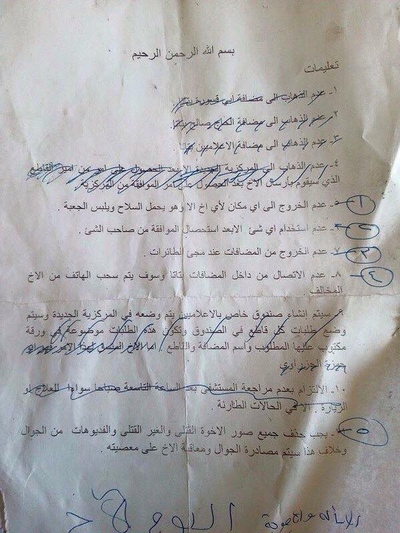 بسم الله الرحمن الرحيم
تعليمات
١- عدم الذهاب الى مضافة ابي
٢- عدم الذهاب الى مضافة الحاج صالح
٣- عدم الذهاب الى مضافة الاعلاميين
٤- عدم الذهاب الى المركزية الجديدة الا بعد الحصول على امر من امير القاطع
الذي سيقوم بأرسال الاخ بعد الحصول على امر الموافقة من المركزية.
٥- عدم الخروج الى اي مكان لأي اخ الا وهو يحمل السلاح ويلبس الجعبة.
٦- عدم استخدام اي شئ الابعد استحصال الموافقة من صاحب الشئ.
٧- عدم الخروج من المضافات عند مجئ الطائرات.
٨- عدم الاتصال من داخل المضافات بتاتا وسوف يتم سحب الهاتف من الاخ
المخالف.
٩- سيتم إنشاء صندوق خاص بالاعلاميين يتم وضعه في المركزية الجديدة وسيتم
وضع طلبات كل قاطع في الصندوق وتكون هذه الطلبات موضوعة في ورقة
مكتوب عليها المطلوب وأسم المضافة والقاطع. اما الاخ
١٠- الالتزام بعدم مراجعة المستشفى بعد الساعة التاسعة صباحا سواءا للعلاج او
الزيارة. الا في الحالات الطارئة.
يجب حذف جميع صور الاخوة القتلى والغير القتلى والفديوهات من الجوال
وخلاف هذا سيتم مصادرة الجوال ومعاقبة الاخ على معصيته.